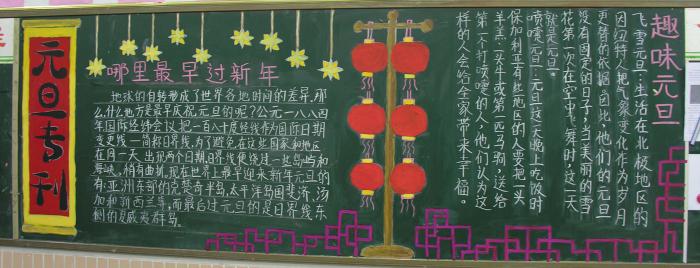 元旦专刊
哪里最早过新年
地球的自转形成了世界各地时间的差异,那
么,什么地方是最早庆祝元旦的呢?公元一八八四
年国际经纬会议把一百八十度经线作为国际日期
变更线—简称日界线,为了避免在这些国家和地区
在同一天出现两个日期,日界线便绕过一些岛屿和
海峡,稍有曲折,现在世界上最早迎来新年元旦的
有:亚洲东部的克楚奇半岛,太平洋岛国斐济、汤
加和新西兰等,而最后过元旦的是日界线东
侧的夏威夷群岛。
趣味元旦
飞雪元旦:生活在北极地区的
因纽特人把气象变化作为岁月
更替的依据。因此,他们的元旦
没有固定的日子,当美丽的雪
花第一次在空中飞舞时,这一天
就是元旦。
喷嚏元旦:元旦这一天晚上吃饭时
保加利亚有些地区的人要把一头
羊羔、一头牛或第一匹马驹,送给
第一个打喷嚏的人,他们认为这
样的人会给全家带来幸福。